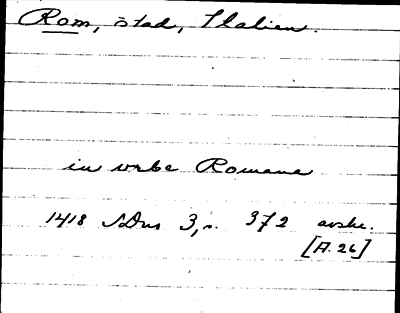 Rom, stad, Italien.
in urbe Romana
1418 SDns 3, s. 372 avskr.
[A. 26]